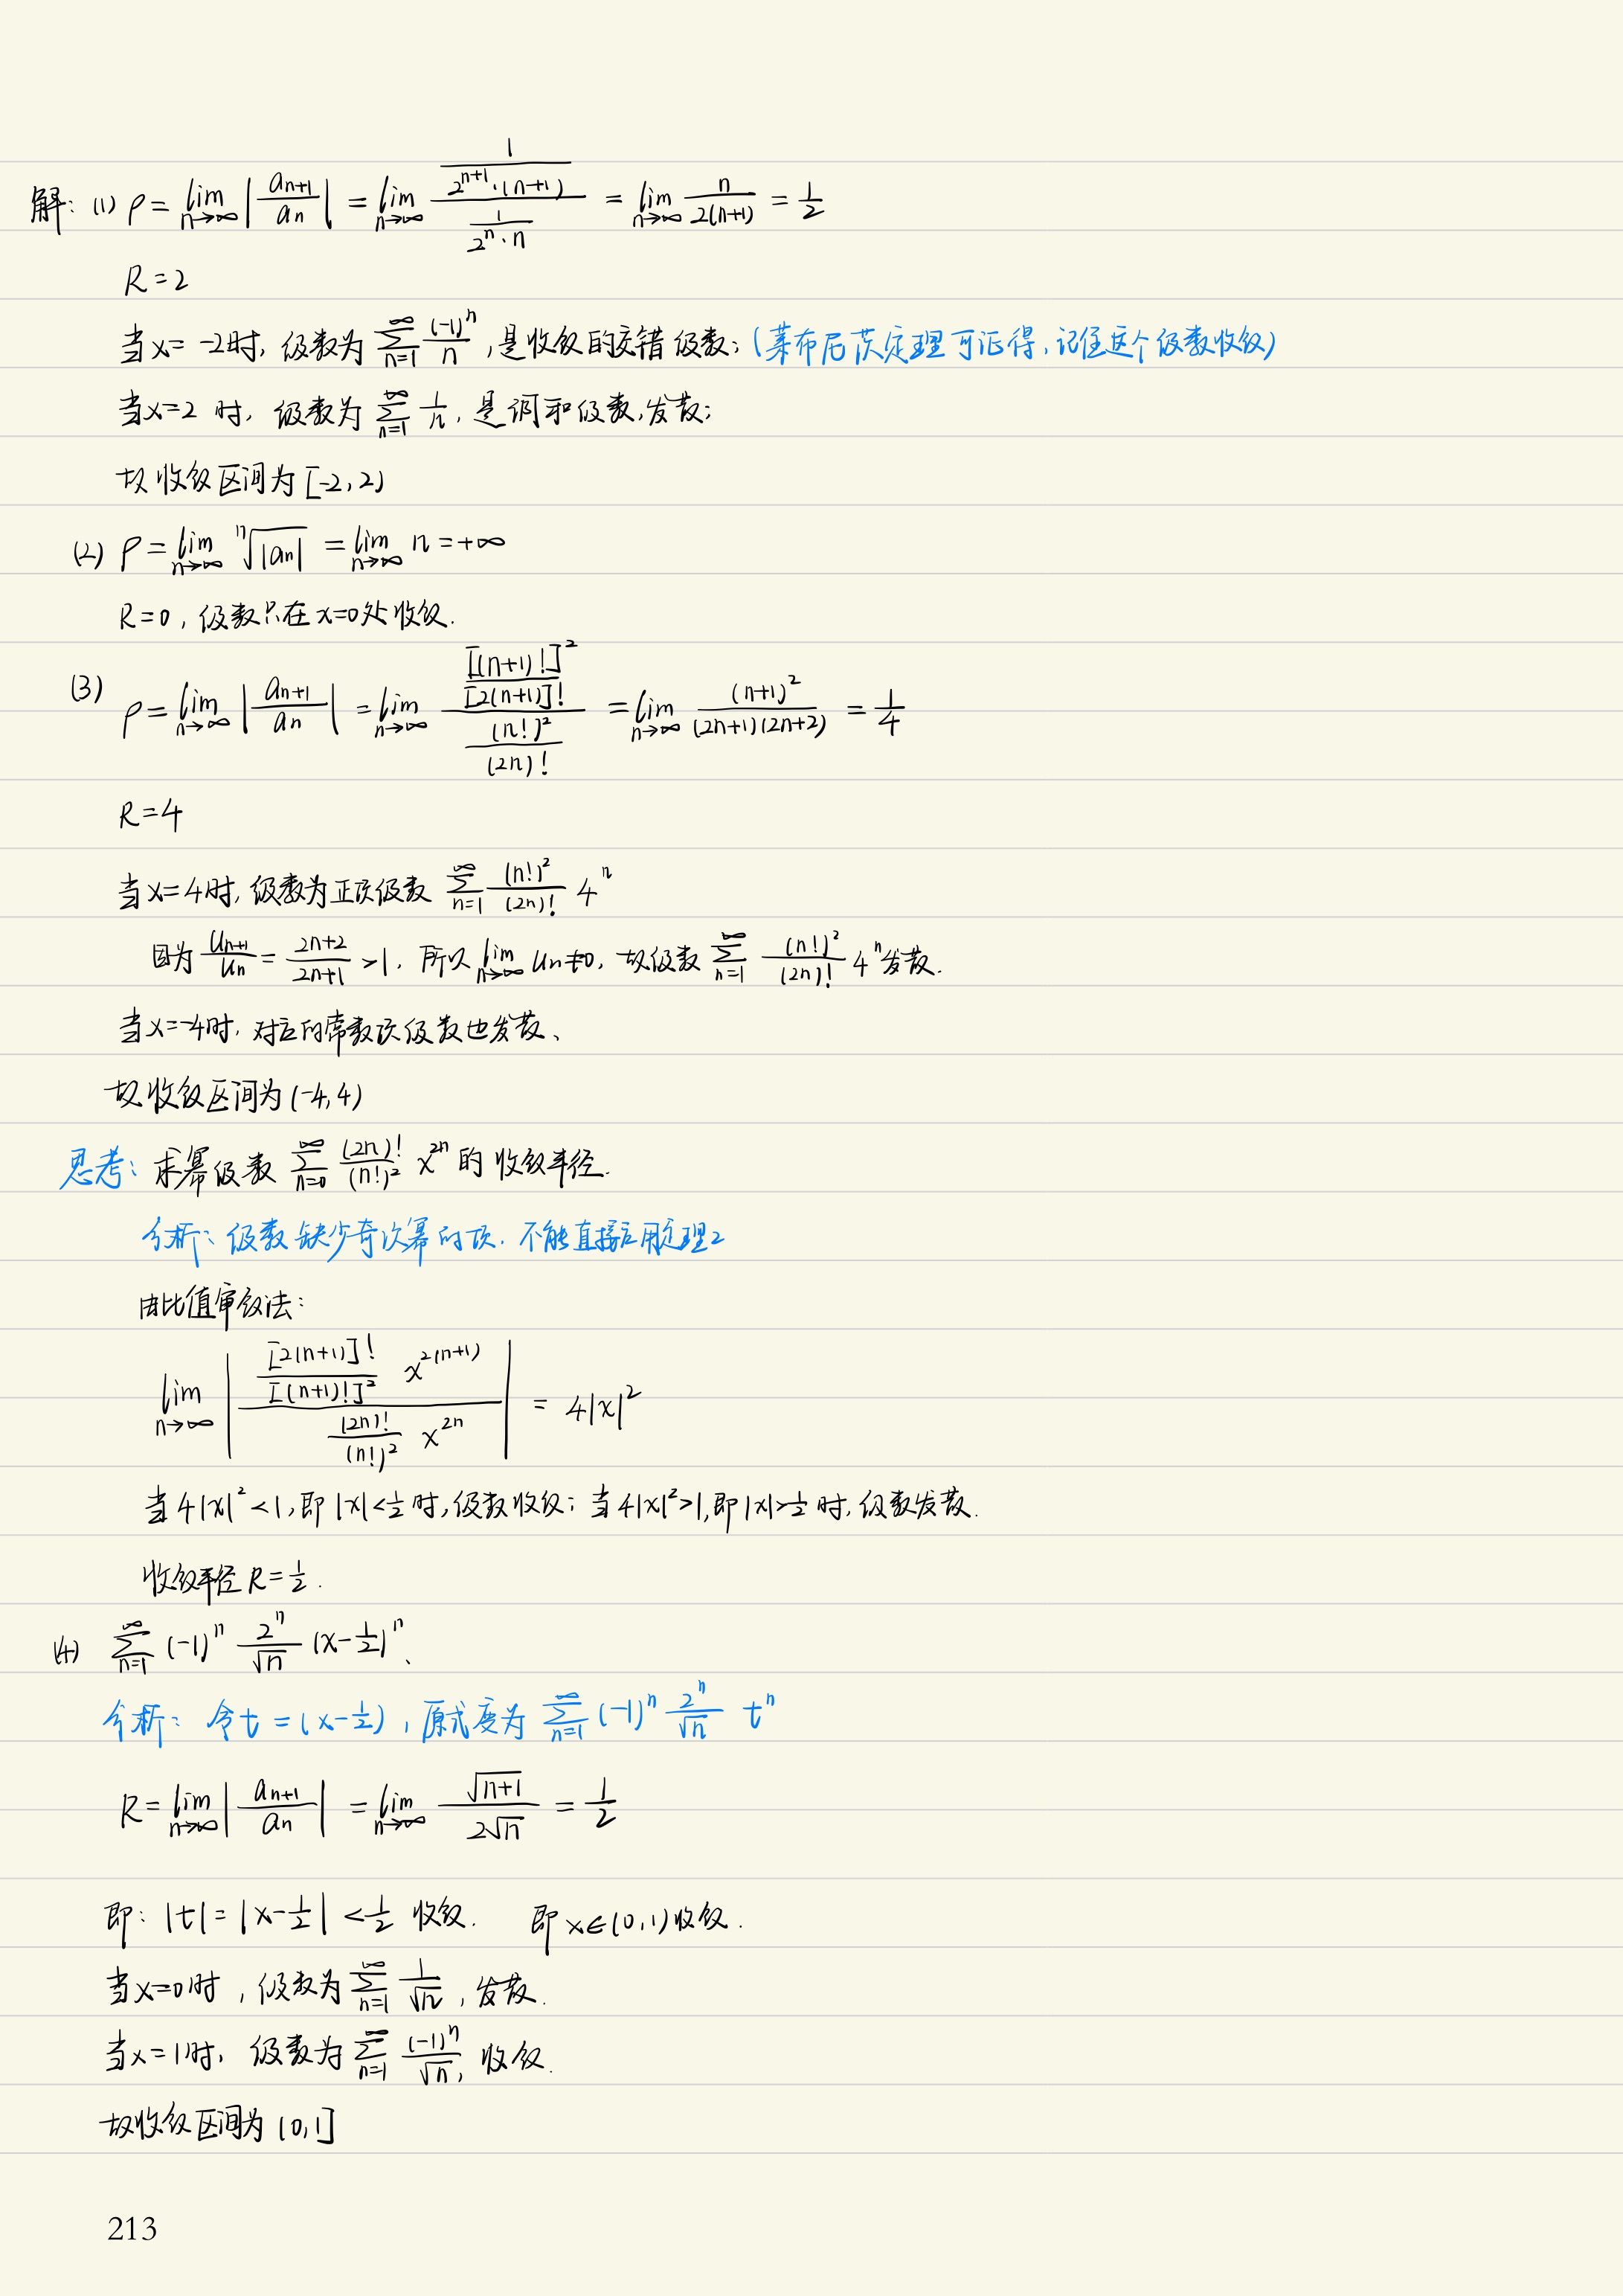 解：(1) ρ = lim_{n→∞} |a_{n+1}/a_n| = lim_{n→∞} (1/(2^{n+1}·(n+1)))/(1/(2^n·n)) = lim_{n→∞} n/(2(n+1)) = 1/2
R = 2
当x = -2时, 级数为 ∑_{n=1}^{∞} (-1)^n/n , 是收敛的交错级数; (莱布尼茨定理可证得, 记住这个级数收敛)
当x=2 时, 级数为 ∑_{n=1}^{∞} 1/n, 是调和级数, 发散;
故收敛区间为 [-2, 2)
(2) ρ = lim_{n→∞} ⁿ√|a_n| = lim_{n→∞} n = +∞
R=0 , 级数只在 x=0处收敛.
(3) ρ = lim_{n→∞} |a_{n+1}/a_n| = lim_{n→∞} ([(n+1)!]^2/[2(n+1)]!)/((n!)^2/(2n)!) = lim_{n→∞} (n+1)^2/((2n+1)(2n+2)) = 1/4
R=4
当x=4时, 级数为正项级数 ∑_{n=1}^{∞} (n!)^2/(2n)! 4^n
因为 u_{n+1}/u_n = (2n+2)/(2n+1) >1, 所以 lim_{n→∞} u_n≠0, 故级数 ∑_{n=1}^{∞} (n!)^2/(2n)! 4^n发散.
当x=-4时, 对应的常数项级数也发散、
故收敛区间为 (-4,4)
思考: 求幂级数 ∑_{n=0}^{∞} (2n)!/(n!)^2 x^{2n} 的收敛半径.
分析: 级数缺少奇次幂的项. 不能直接应用定理2
由比值审敛法:
lim_{n→∞} |([2(n+1)]!/[(n+1)!]^2 x^{2(n+1)})/((2n)!/(n!)^2 x^{2n})| = 4|x|^2
当 4|x|^2 <1, 即 |x|<1/2 时, 级数收敛; 当 4|x|^2>1, 即 |x|>1/2 时, 级数发散.
收敛半径 R = 1/2 .
(4) ∑_{n=1}^{∞} (-1)^n 2^n/√n (x-1/2)^n、
分析: 令t = (x-1/2) , 原式变为 ∑_{n=1}^{∞} (-1)^n 2^n/√n t^n
R = lim_{n→∞} |a_{n+1}/a_n| = lim_{n→∞} √(n+1)/(2√n) = 1/2
即: |t| = |x-1/2| < 1/2 收敛. 即 x∈(0,1)收敛 .
当x=0时 , 级数为 ∑_{n=1}^{∞} 1/√n , 发散.
当x=1时, 级数为 ∑_{n=1}^{∞} (-1)^n/√n, 收敛.
故收敛区间为 (0,1]
213